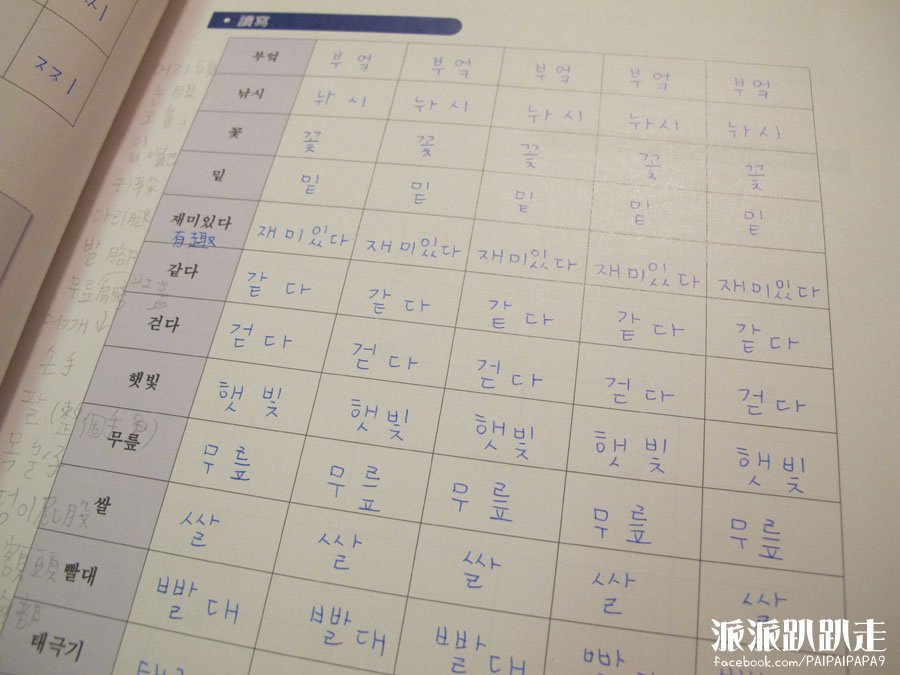 찌
ㅉㅣ
• 讀寫
부엌 부엌 부엌 부엌 부엌 부엌
낚시 낚시 낚시 낚시 낚시 낚시
꽃 꽃 꽃 꽃 꽃 꽃
밑 밑 밑 밑 밑 밑
재미있다 재미있다 재미있다 재미있다 재미있다 재미있다
有趣
같다 같다 같다 같다 같다 같다
걷다 걷다 걷다 걷다 걷다 걷다
햇빛 햇빛 햇빛 햇빛 햇빛 햇빛
무릎 무릎 무릎 무릎 무릎 무릎
쌀 쌀 쌀 쌀 쌀 쌀
빨대 빨대 빨대 빨대 빨
태극기
다리腿
발 腳
손手
額頭
派派趴趴走
facebook.com/PAIPAIPAPA9